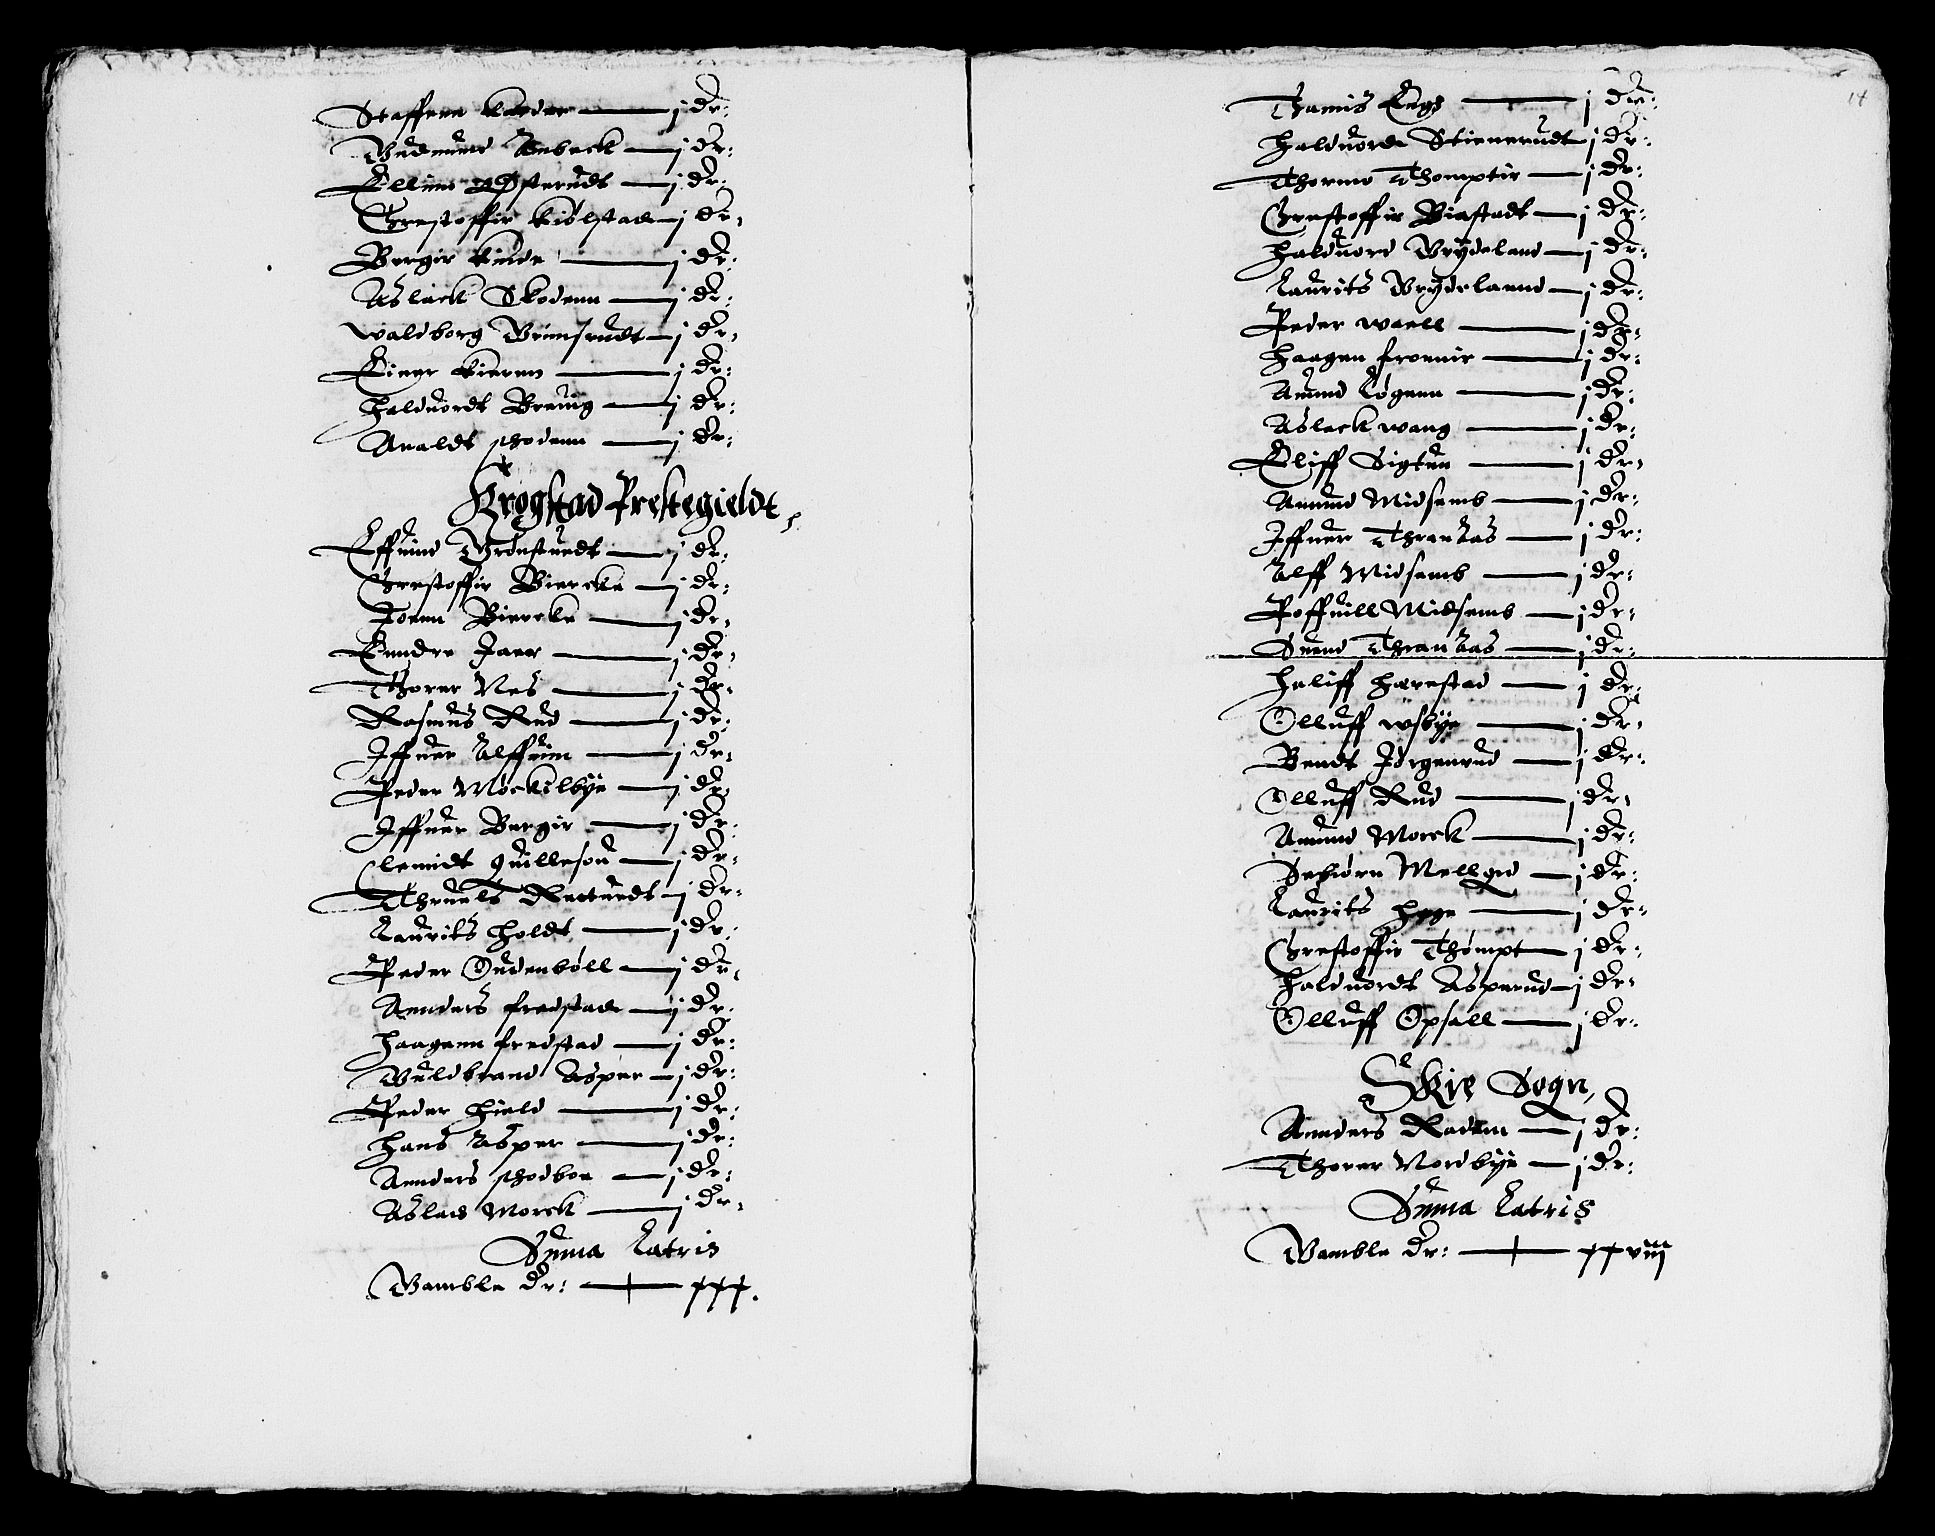 Staffenn Karder — j dr:
Gudmund Aebeck — j dr:
Ellinn Østerudt — j dr:
Christoffir Kiølstad — j dr:
Bergir Kinde — j dr:
Aslack Skodenn — j dr:
Waldborg Grimsrudt — j dr:
Einer Kieren — j dr:
Haluordt Breuig — j dr:
Analdt schodenn — j dr:
Krogstad Prestegieldt,
Effuind — j dr:
Christoffir Biercke — j dr:
Joenn Biercke — j dr:
Gundre Jaer — j dr:
Thorer Nes — j dr:
Rasmus Rud — j dr:
Iffuer Alffuim — j dr:
Peder Mockilbye — j dr:
Iffuer Bergir — j dr:
Clemidt Huilleson — j dr:
Thruels — j dr:
Laurits Holdt — j dr:
Peder Oudenbøll — j dr:
Annders fredstad — j dr:
Haagenn fredstad — j dr:
Guldbrand Asper — j dr:
Peder Hield — j dr:
Hans Asper — j dr:
Annders schodboe — j dr:
Aslack Morck — j dr:
Suma Latris
Gamble dr: — xxx.
14
Thamis Engh — j dr:
Halduord Stienerudt — j dr:
Thormo Thomptir — j dr:
Christoffir Biastadt — j dr:
Halduord Brydeland — j dr:
Laurits Brydelannd — j dr:
Peder Woell — j dr:
Haagen froenir — j dr:
Amund Løgenn — j dr:
Aslack Wang — j dr:
Eliff Sigtun — j dr:
Amund Midsemb — j dr:
Iffuer Thranaas — j dr:
Alff Midsemb — j dr:
Poffuill Midsemb — j dr:
Suend Thranaas — j dr:
Heliff Harestad — j dr:
Olluff Wsbye — j dr:
Bendt Jørgenrud — j dr:
Olluff Rud — j dr:
Amund Morck — j dr:
Sebiørn Mellgrd — j dr:
Laurits Høge — j dr:
Christoffir Thompt — j dr:
Halduordt Asperud — j dr:
Olluff Opsall — j dr:
Skie Sogn,
Annders Radum — j dr:
Thorer Nordbye — j dr:
Suma Latris
Gamble dr: — xxviij